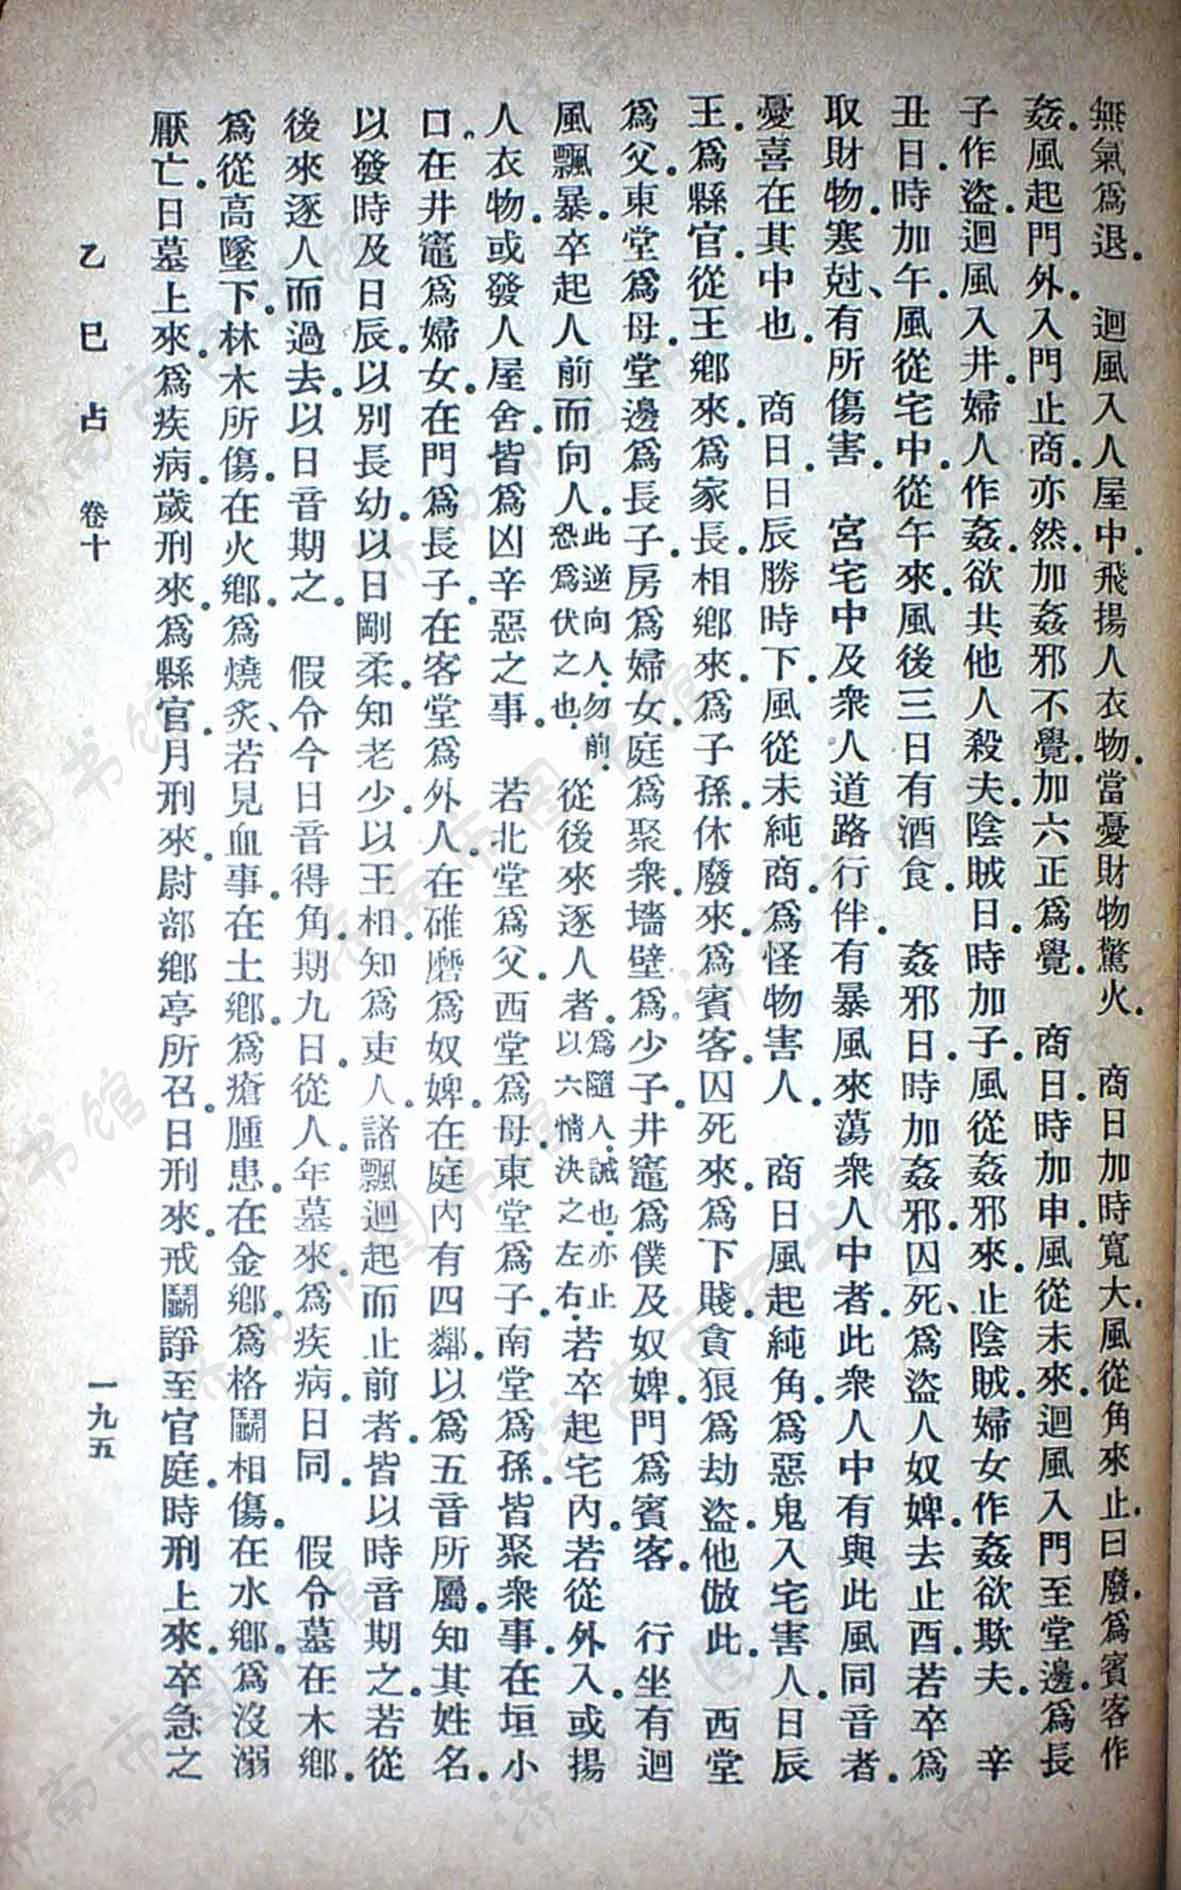 無氣爲退。　迴風入人屋中。飛揚人衣物。當憂財物驚火。　商日加時寬大。風從角來止。曰廢。爲賓客作
姦。風起門外。入門止商。亦然。加姦邪不覺。加六正爲覺。　商日。時加申。風從未來。迴風入門至堂邊。爲長
子作盜。迴風入井。婦人作姦。欲共他人殺夫。陰賊日。時加子。風從姦邪來。止陰賊。婦女作姦欲欺夫。　辛
丑日。時加午。風從宅中。從午來。風後三日有酒食。　姦邪日。時加姦邪。囚死、爲盜人奴婢。去止酉。若卒爲
取財物。寒尅、有所傷害。　宮宅中及衆人道路行伴。有暴風來蕩衆人中者。此衆人中有與此風同音者。
憂喜在其中也。　商日。日辰勝時下。風從未純商。爲怪物害人。　商日風起純角。爲惡鬼入宅害人。日辰
王。爲縣官。從王鄉來。爲家長。相鄉來。爲子孫。休廢來。爲賓客。囚死來。爲下賤。貪狼爲劫盜。他倣此。　西堂
爲父。東堂爲母。堂邊爲長子。房爲婦女。庭爲聚衆。墻壁爲少子。井竈爲僕及奴婢。門爲賓客。　行坐有迴
風飄暴。卒起人前而向人。此逆向人。勿前。恐爲伏之也。從後來逐人者。爲隨人。誡也。亦止以六情決之左右。若卒起宅內。若從外入。或揚
人衣物。或發人屋舍。皆爲凶辛惡之事。　若北堂爲父。西堂爲母。東堂爲子。南堂爲孫。皆聚衆事。在垣小
口。在井竈爲婦女。在門爲長子。在客堂爲外人。在碓磨爲奴婢。在庭內有四鄰。以爲五音所屬。知其姓名。
以發時及日辰。以別長幼。以日剛柔。知老少。以王相。知爲吏人。諸飄迴起而止前者。皆以時音期之。若從
後來逐人而過去。以日音期之。　假令今日音得角。期九日。從人年墓來。爲疾病。日同。　假令墓在木鄉。
爲從高墜下。林木所傷。在火鄉。爲燒炙、若見血事。在土鄉。爲瘡腫患。在金鄉。爲格鬬相傷。在水鄉。爲沒溺
厭亡。日墓上來。爲疾病。歲刑來。爲縣官。月刑來。尉部鄉亭所召。日刑來。戒鬬諍至官庭。時刑上來。卒急之
乙巳占　卷十　一九五